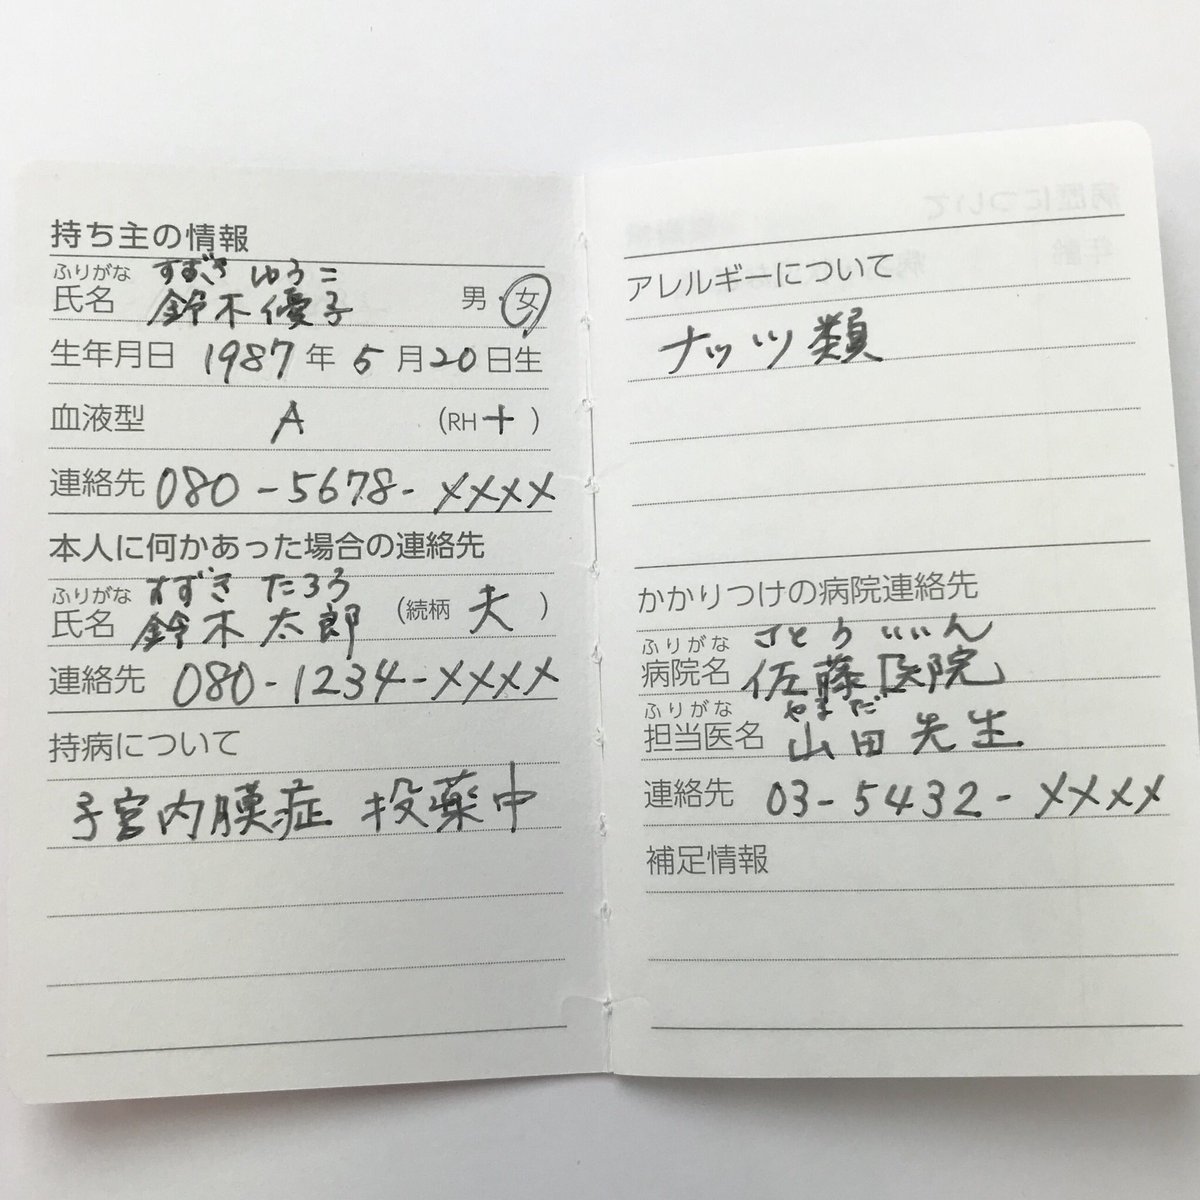 持ち主の情報
ふりがな すずき ゆうこ
氏名 鈴木優子 男・女
生年月日 1987年 5月20日生
血液型 A (RH + )
連絡先 080-5678-××××
本人に何かあった場合の連絡先
ふりがな すずき たろう
氏名 鈴木 太郎 (続柄 夫 )
連絡先 080-1234-××××
持病について
子宮内膜症 投薬中
アレルギーについて
ナッツ類
かかりつけの病院連絡先
ふりがな さとう いいん
病院名 佐藤医院
ふりがな やまだ
担当医名 山田先生
連絡先 03-5432-××××
補足情報